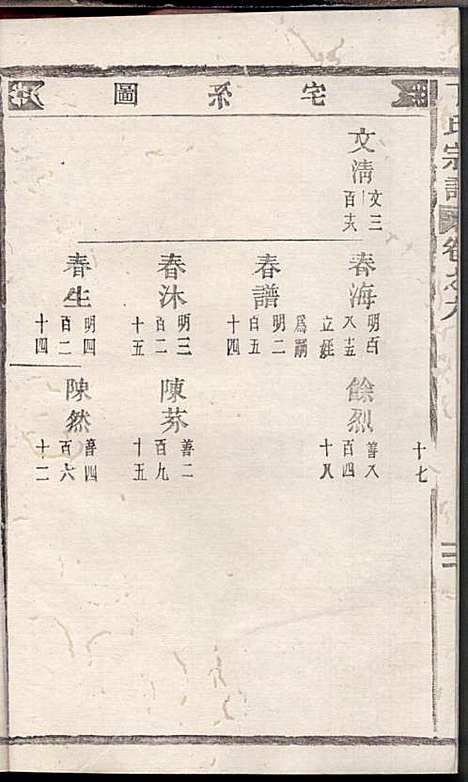 宅系圖
文清 文三 百六
春海 明百 八十五 立經 為嗣
春譜 明二 百五 十四
春沐 明三 百二 十五
春生 明四 百二 十四
餘烈 善八 百四 十八
陳芬 善二 百九 十五
陳然 善四 百六 十二
氏宗譜
卷之九
十七